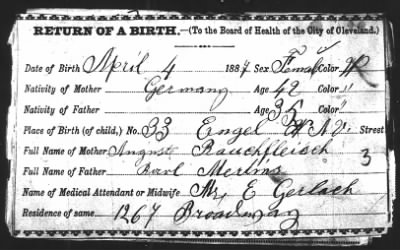 RETURN OF A BIRTH.—(To the Board of Health of the City of Cleveland.)
Date of Birth April 4 1887 Sex Female Color W
Nativity of Mother Germany Age 42 Color "
Nativity of Father " Age 35 Color "
Place of Birth (of child,) No. 33 Engel Street
Full Name of Mother Auguste Rauchfleisch
Full Name of Father Karl Mertins 3
Name of Medical Attendant or Midwife E Gerlach
Residence of same 1267 Broadway